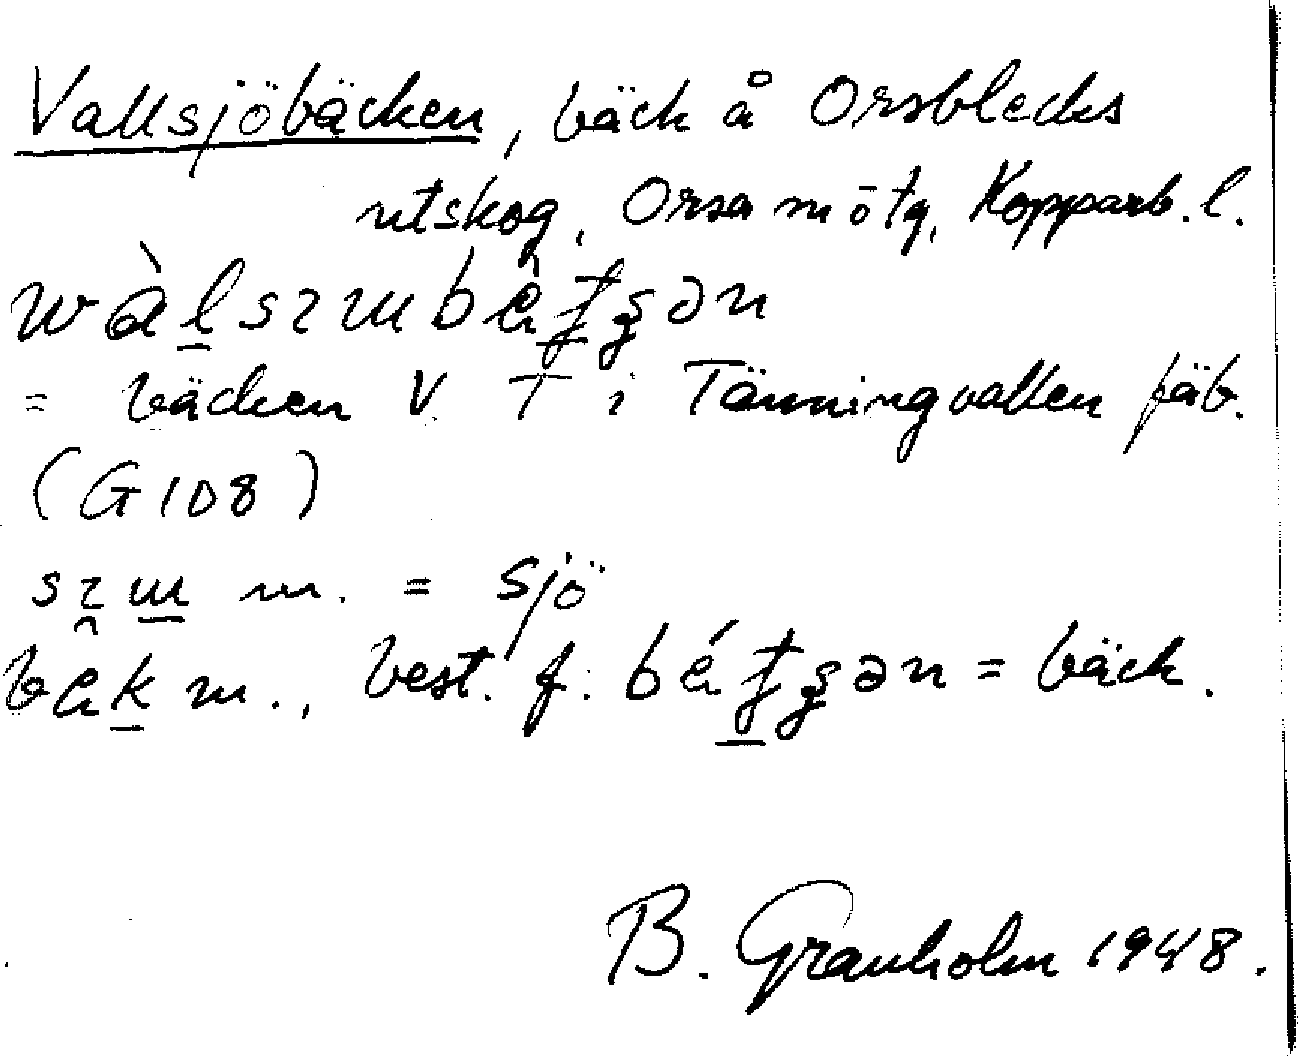 Vallsjöbäcken, bäck å Orsblecks
utskog, Orsa mōtg, Kopparb. l.
= bäcken V. T i Tänningvallen fäb.
(G108)
m. = sjö
m., best. f. = bäck.
B. Granholm 1948.